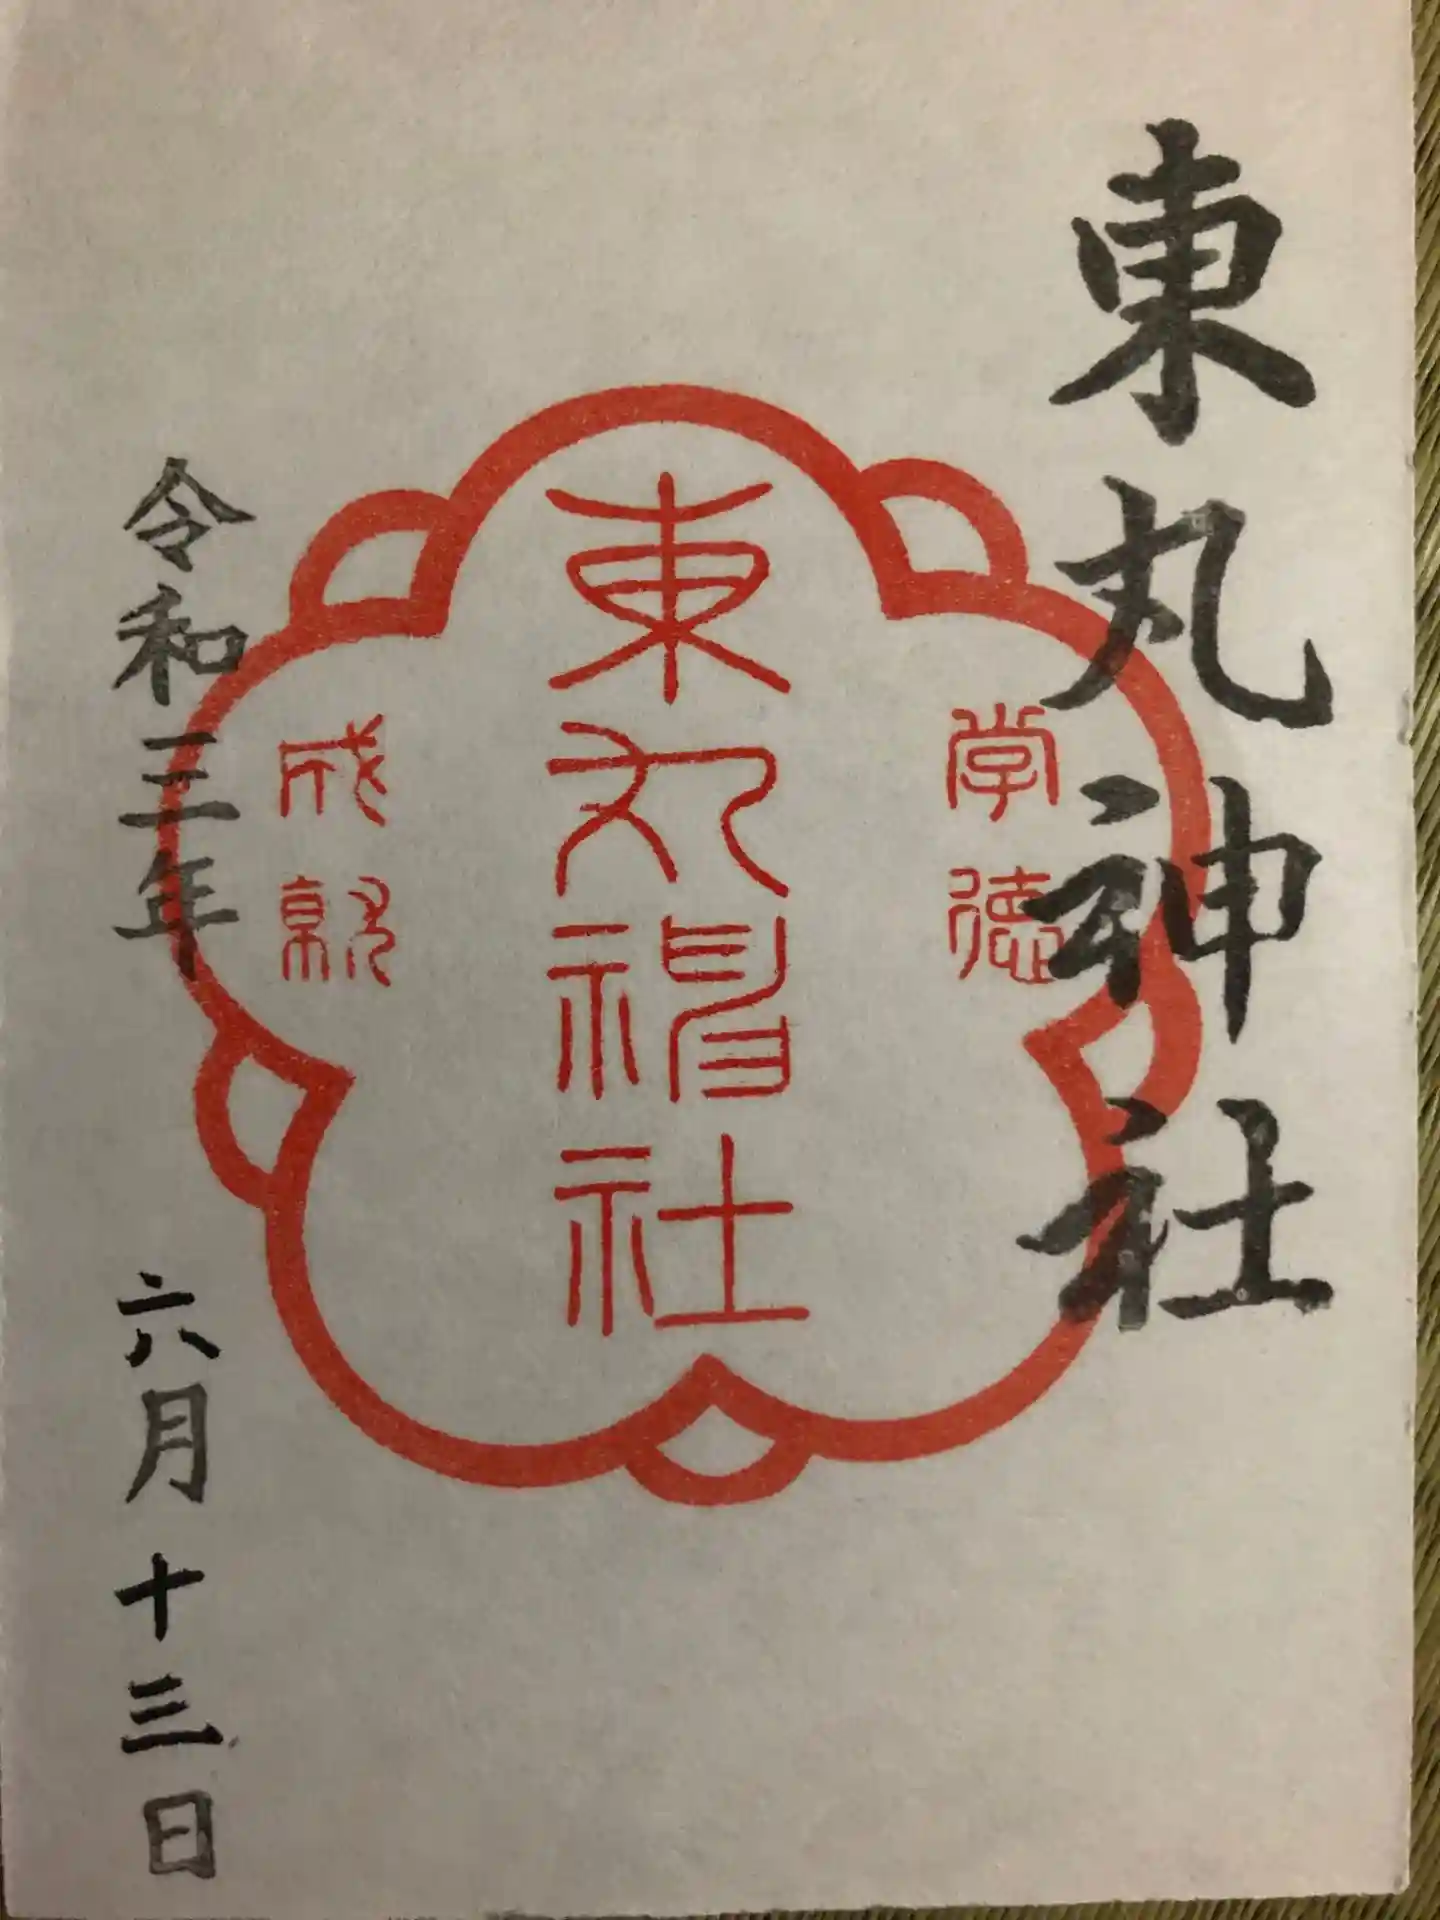 東丸神社
学徳
東丸神社
成就
令和三年 六月十三日